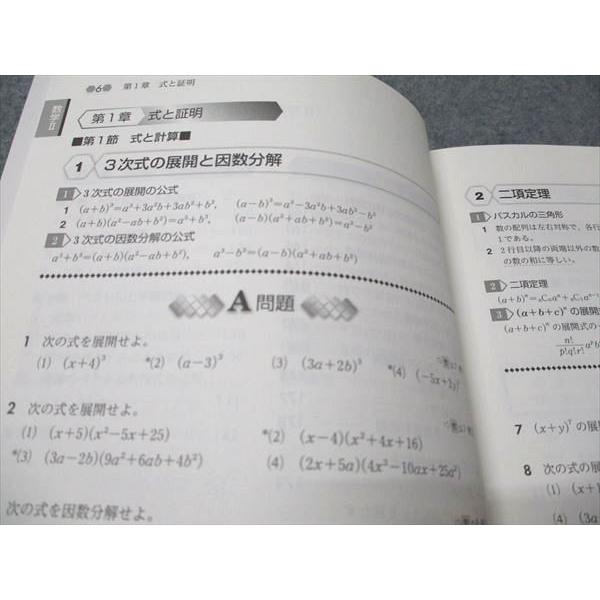 6 第1章 式と証明
数学Ⅱ
第1章 式と証明
■第1節 式と計算■
1 3次式の展開と因数分解
1 3次式の展開の公式
1 (a+b)³=a³+3a²b+3ab²+b³, (a−b)³=a³−3a²b+3ab²−b³
2 (a+b)(a²−ab+b²)=a³+b³, (a−b)(a²+ab+b²)=a³−b³
2 3次式の因数分解の公式
a³+b³=(a+b)(a²−ab+b²), a³−b³=(a−b)(a²+ab+b²)
A問題
1 次の式を展開せよ。
(1) (x+4)³ *(2) (a−3)³ (3) (3a+2b)³ *(4) (−5x+2y)³
2 次の式を展開せよ。
(1) (x+5)(x²−5x+25) *(2) (x−4)(x²+4x+16)
*(3) (3a−2b)(9a²+6ab+4b²) (4) (2x+5a)(4x²−10ax+25a²)
次の式を因数分解せよ。
2 二項定理
1 パスカルの三角形
1 数の配列は左右対称で,各行
1である。
2 2行目以降の両端以外の数
の数の和に等しい。
2 二項定理
(a+b)ⁿ=ₙC₀aⁿ+ₙC₁aⁿ⁻¹
3 (a+b+c)ⁿ の展開
(a+b+c)ⁿ の展開式の
n!
p!q!r!
7 (x+y)⁷ の展開
8 次の式の展
(1) (x+1
(4) (3a